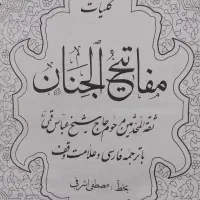 کلیات
مفاتیح الجنان
ثقة المحدثین مرحوم حاج شیخ عباس قمی
با ترجمه فارسی و علامت وقف
بخط: مصطفی اشرفی